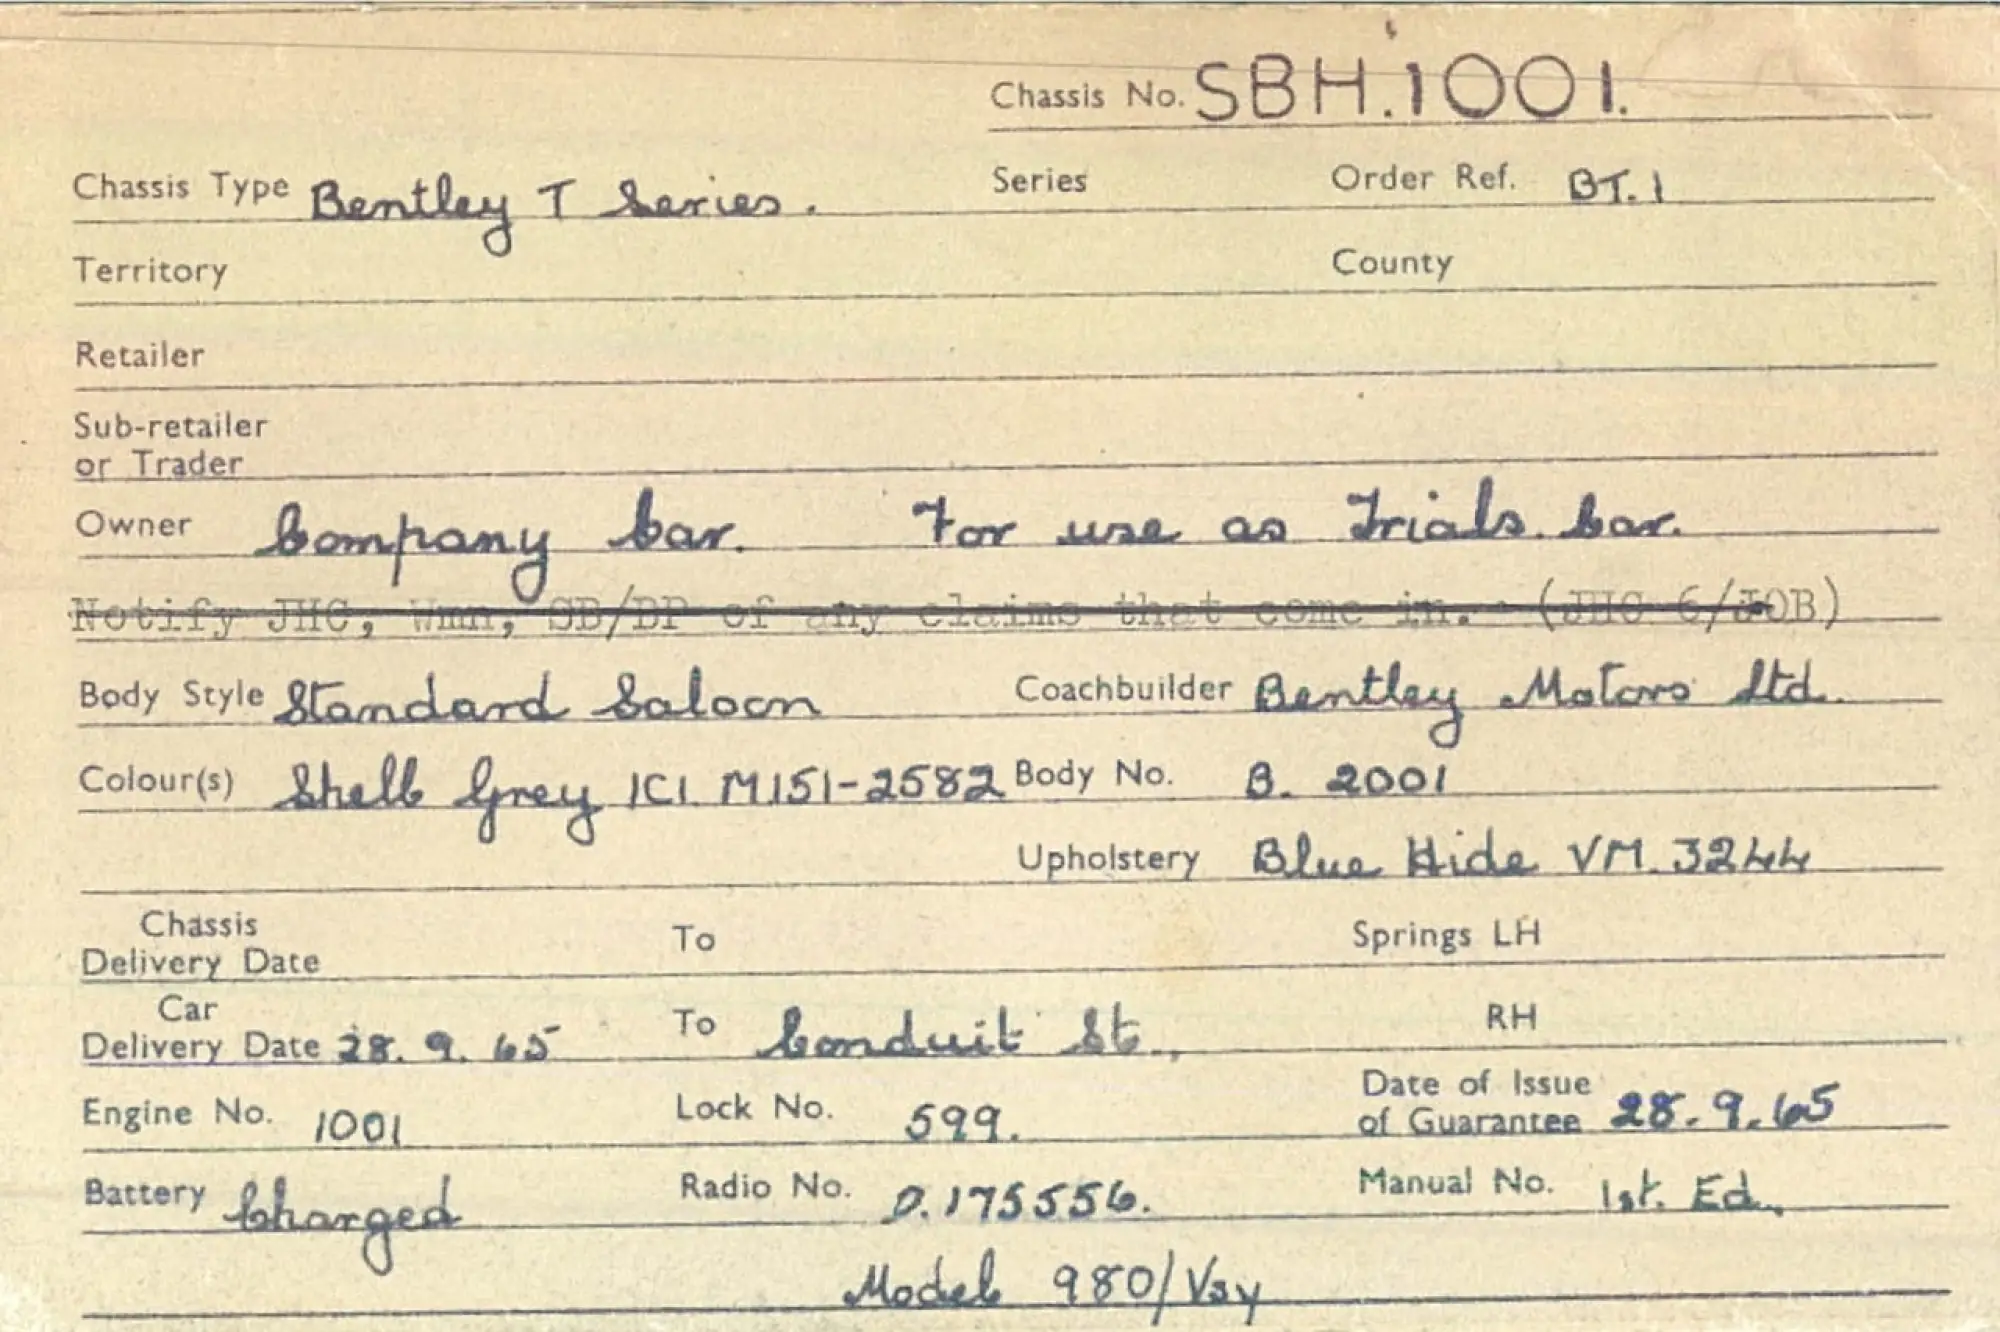 Chassis No. SBH.1001.
Chassis Type Bentley T Series. Series Order Ref. BT.1
Territory County
Retailer
Sub-retailer
or Trader
Owner Company Car. For use as Trials. Car.
Notify JHC, Wmn, SB/BP of any claims that come in. (JHC 6/JOB)
Body Style Standard Saloon Coachbuilder Bentley Motors Ltd.
Colour(s) Shell Grey ICI. M151-2582 Body No. B. 2001
Upholstery Blue Hide VM. 3244
Chassis
Delivery Date To Springs LH
Car
Delivery Date 28. 9. 65 To Conduit St., RH
Engine No. 1001 Lock No. 599. Date of Issue
of Guarantee 28. 9. 65
Battery Charged Radio No. D.175556. Manual No. 1st. Ed.
Model 980/